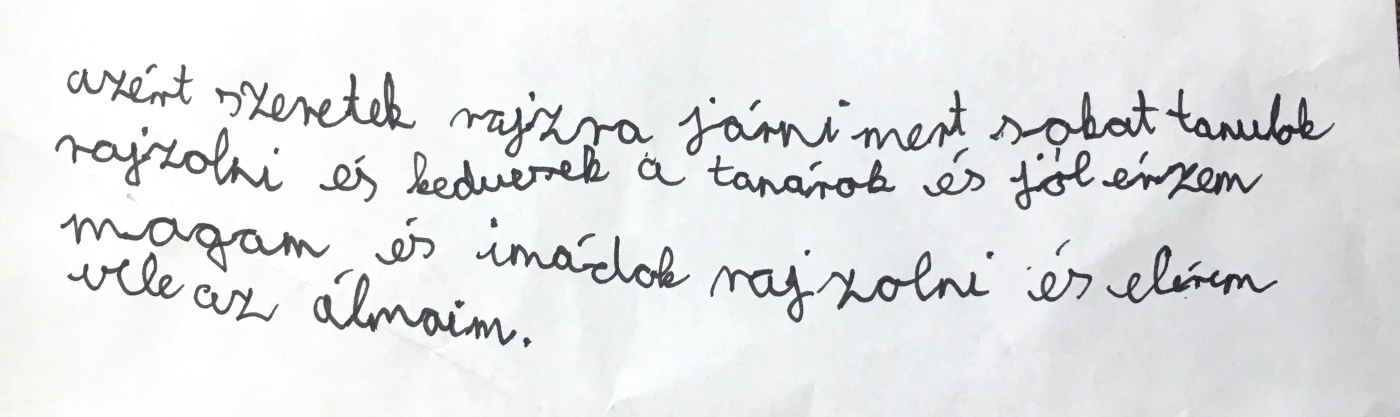 azért szeretek rajzra járni mert sokat tanulok
rajzolni és kedvesek a tanárok és jól érzem
magam és imádok rajzolni és elérem
vele az álmaim.